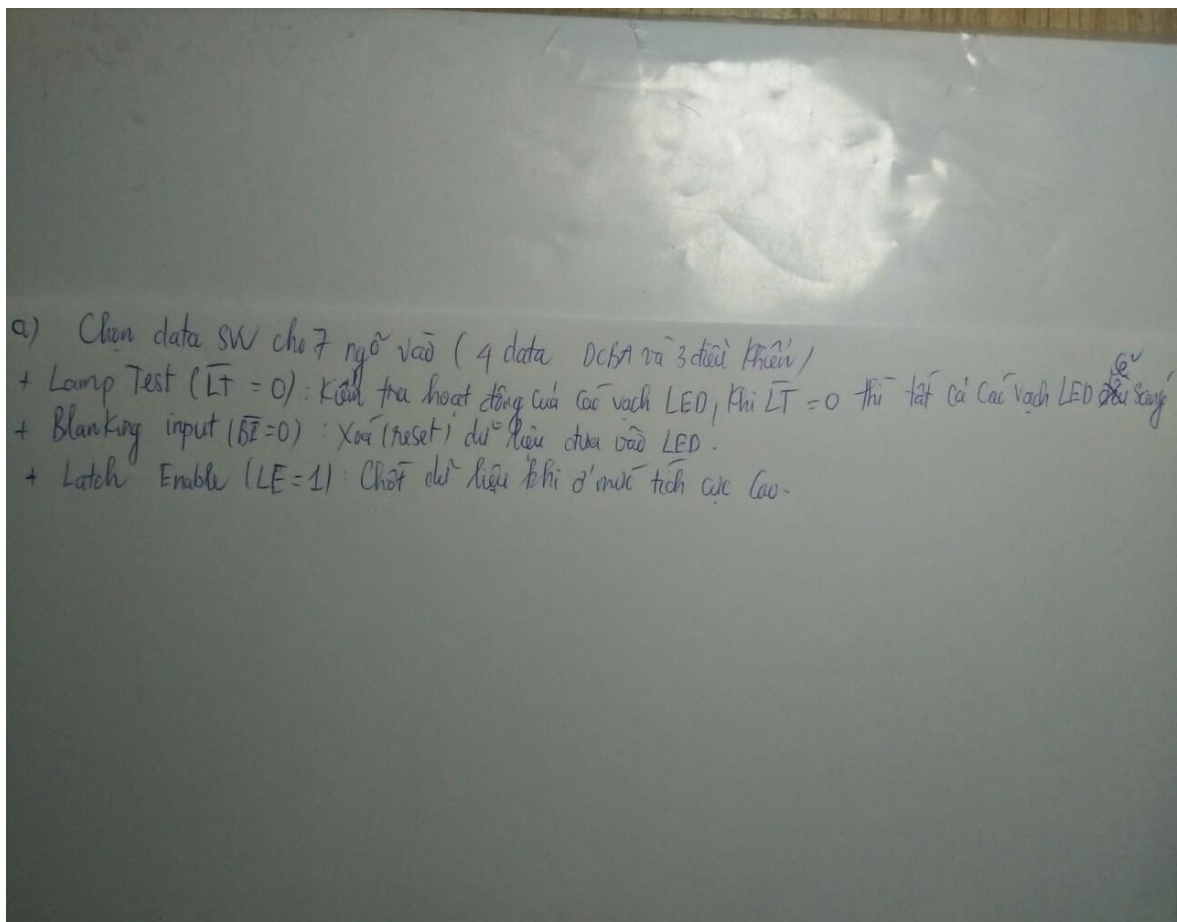 a) Chọn data SW cho 7 ngõ vào ( 4 data DCBA và 3 điều khiển)
+ Lamp Test (L̅T̅ = 0) : Kiểm tra hoạt động của các vạch LED, khi L̅T̅ = 0 thì tất cả các vạch LED sẽ sáng
+ Blanking input (B̅I̅=0) : Xoá (reset) dữ liệu đưa vào LED.
+ Latch Enable (LE = 1) : Chốt dữ liệu khi ở mức tích cực cao.